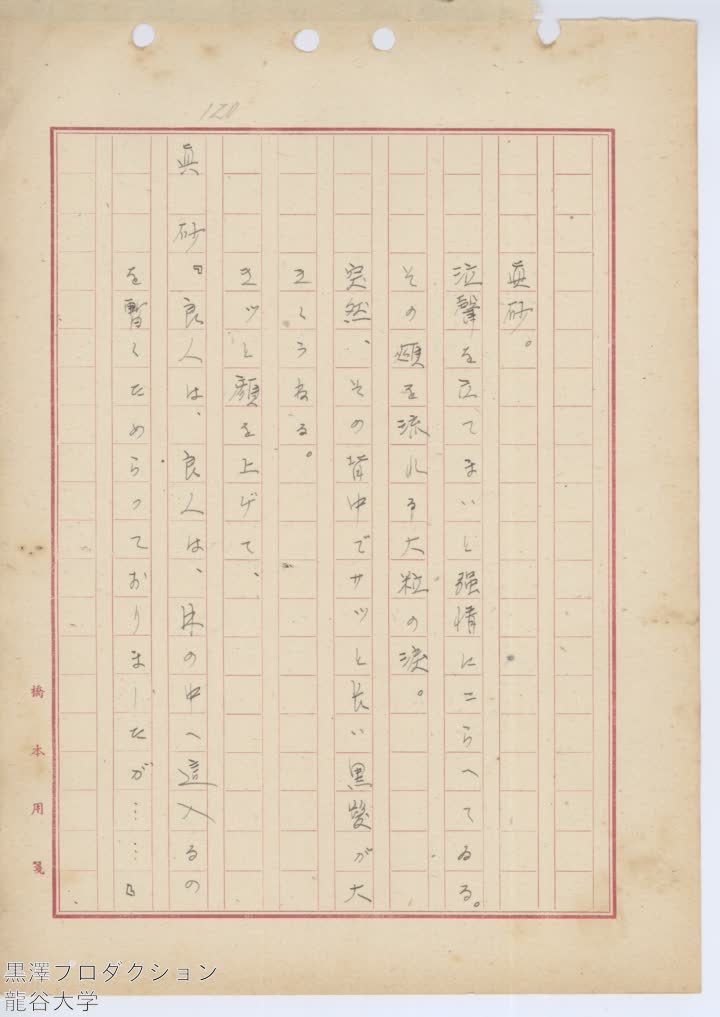 120
眞砂。
泣聲を立てまいと强情にこらへてゐる。
その頰を流れる大粒の淚。
突然、その背中でサッと長い黒髮が大
きくうねる。
キッと顏を上げて、
眞砂『良人は、良人は、木の中へ這入るの
を暫くためらっておりましたが……』
橋本用箋
黒澤プロダクション
龍谷大学